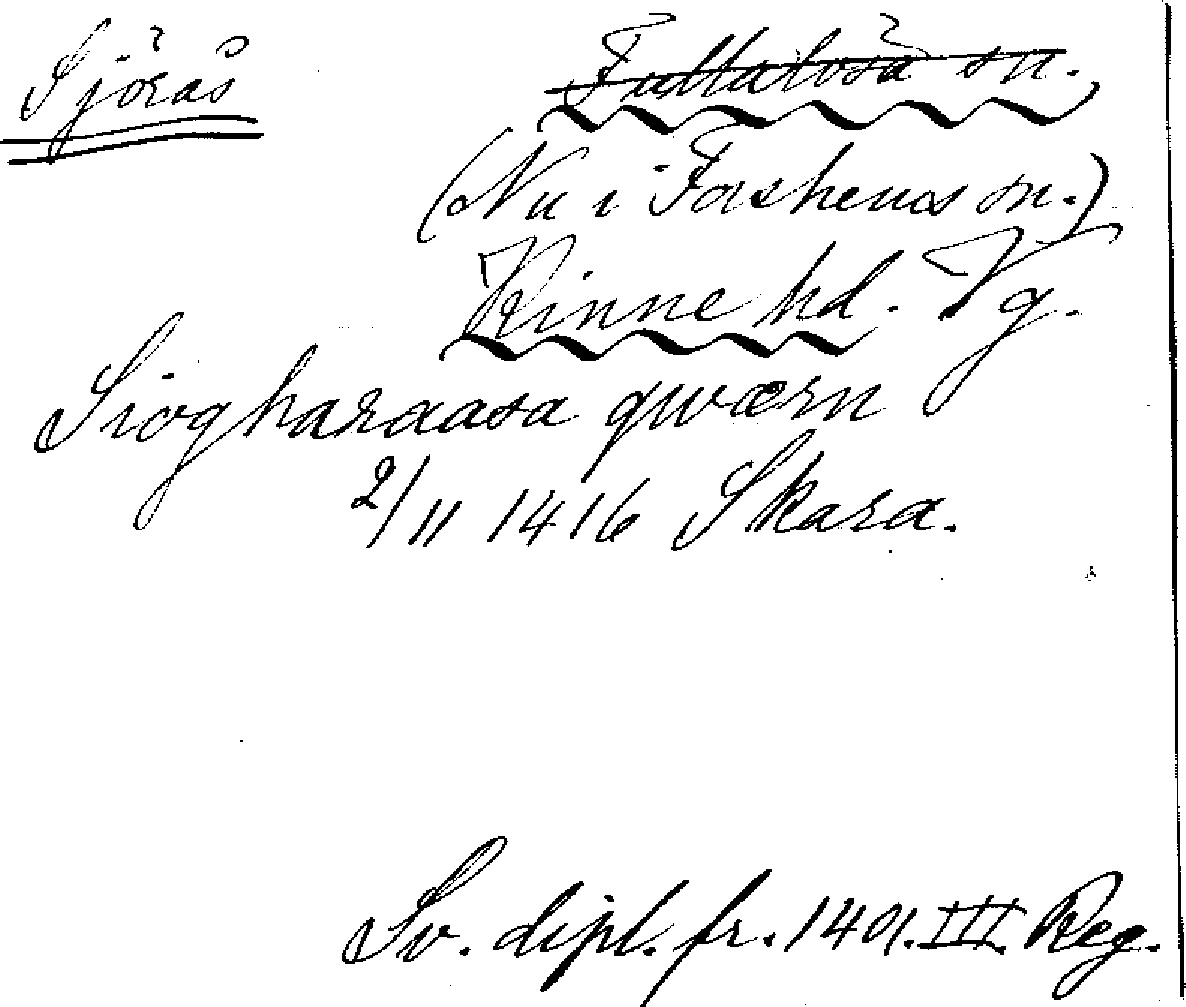 Sjörås
Fullatösa sn.
(Nu i Forshems sn.)
Kinne hd. Vg.
Sioghæraasa qwærn
2/11 1416 Skara.
Sv. dipl. fr. 1401. III. Reg.